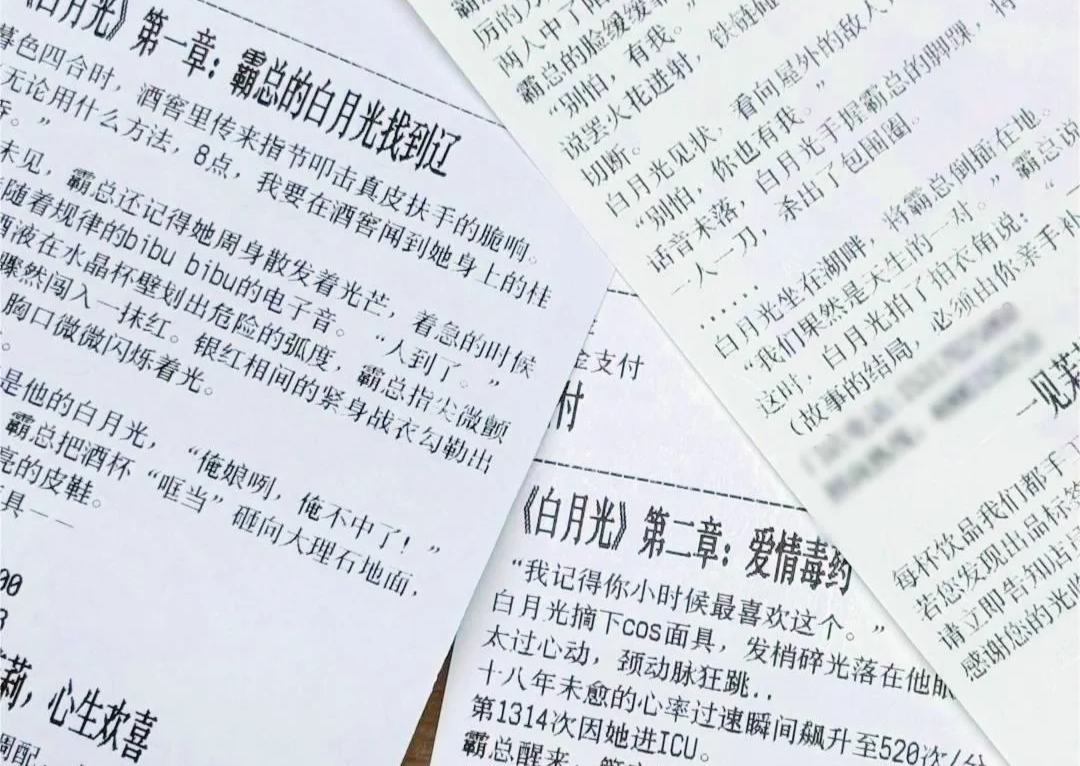 《白月光》第一章：霸总的白月光找到辽
暮色四合时，酒窖里传来指节叩击真皮扶手的脆响。
无论用什么方法，8点，我要在酒窖闻到她身上的桂
香。”
未见，霸总还记得她周身散发着光芒，着急的时候
随着规律的bibu bibu的电子音。“人到了。”
酒液在水晶杯壁划出危险的弧度，霸总指尖微颤
骤然闯入一抹红。银红相间的紧身战衣勾勒出
胸口微微闪烁着光。
是他的白月光，“俺娘咧，俺不中了！”
霸总把酒杯“哐当”砸向大理石地面，
亮的皮鞋。
具——
00
3
莉，心生欢喜
调配，
金支付
付
《白月光》第二章：爱情毒药
“我记得你小时候最喜欢这个。”
白月光摘下cos面具，发梢碎光落在他眼
太过心动，颈动脉狂跳..
十八年未愈的心率过速瞬间飙升至520次/分
第1314次因她进ICU。
霸总醒来，
两人中了
霸总的脸缓缓
“别怕，有我。”
说罢火花迸射，铁链
切断。
白月光见状，看向屋外的敌人，
“别怕，你也有我。”
话音未落，白月光手握霸总的脚踝，将
一人一刀，杀出了包围圈。
......
白月光坐在湖畔，将霸总倒插在地。
“我们果然是天生的一对。”霸总说
这时，白月光拍了拍衣角说：“一
（故事的结局，必须由你亲手补
一见茉
每杯饮品我们都手工
若您发现出品标签
请立即告知店员
感谢您的光临